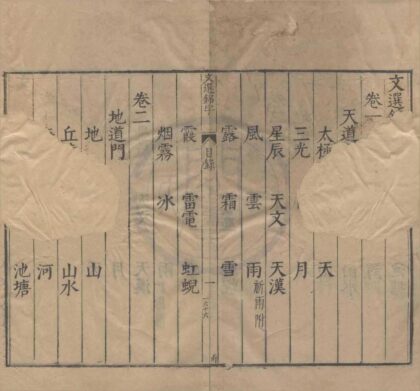 文選
卷一
天道
太極 天
三光 月
星辰 天文 天漢
風 雲 雨祈雨附
露 霜 雪
文選錦字 目錄 一
霞 雷電 虹蜺
烟霧 冰
卷二
地道門
地 山
丘 山水
河
池塘